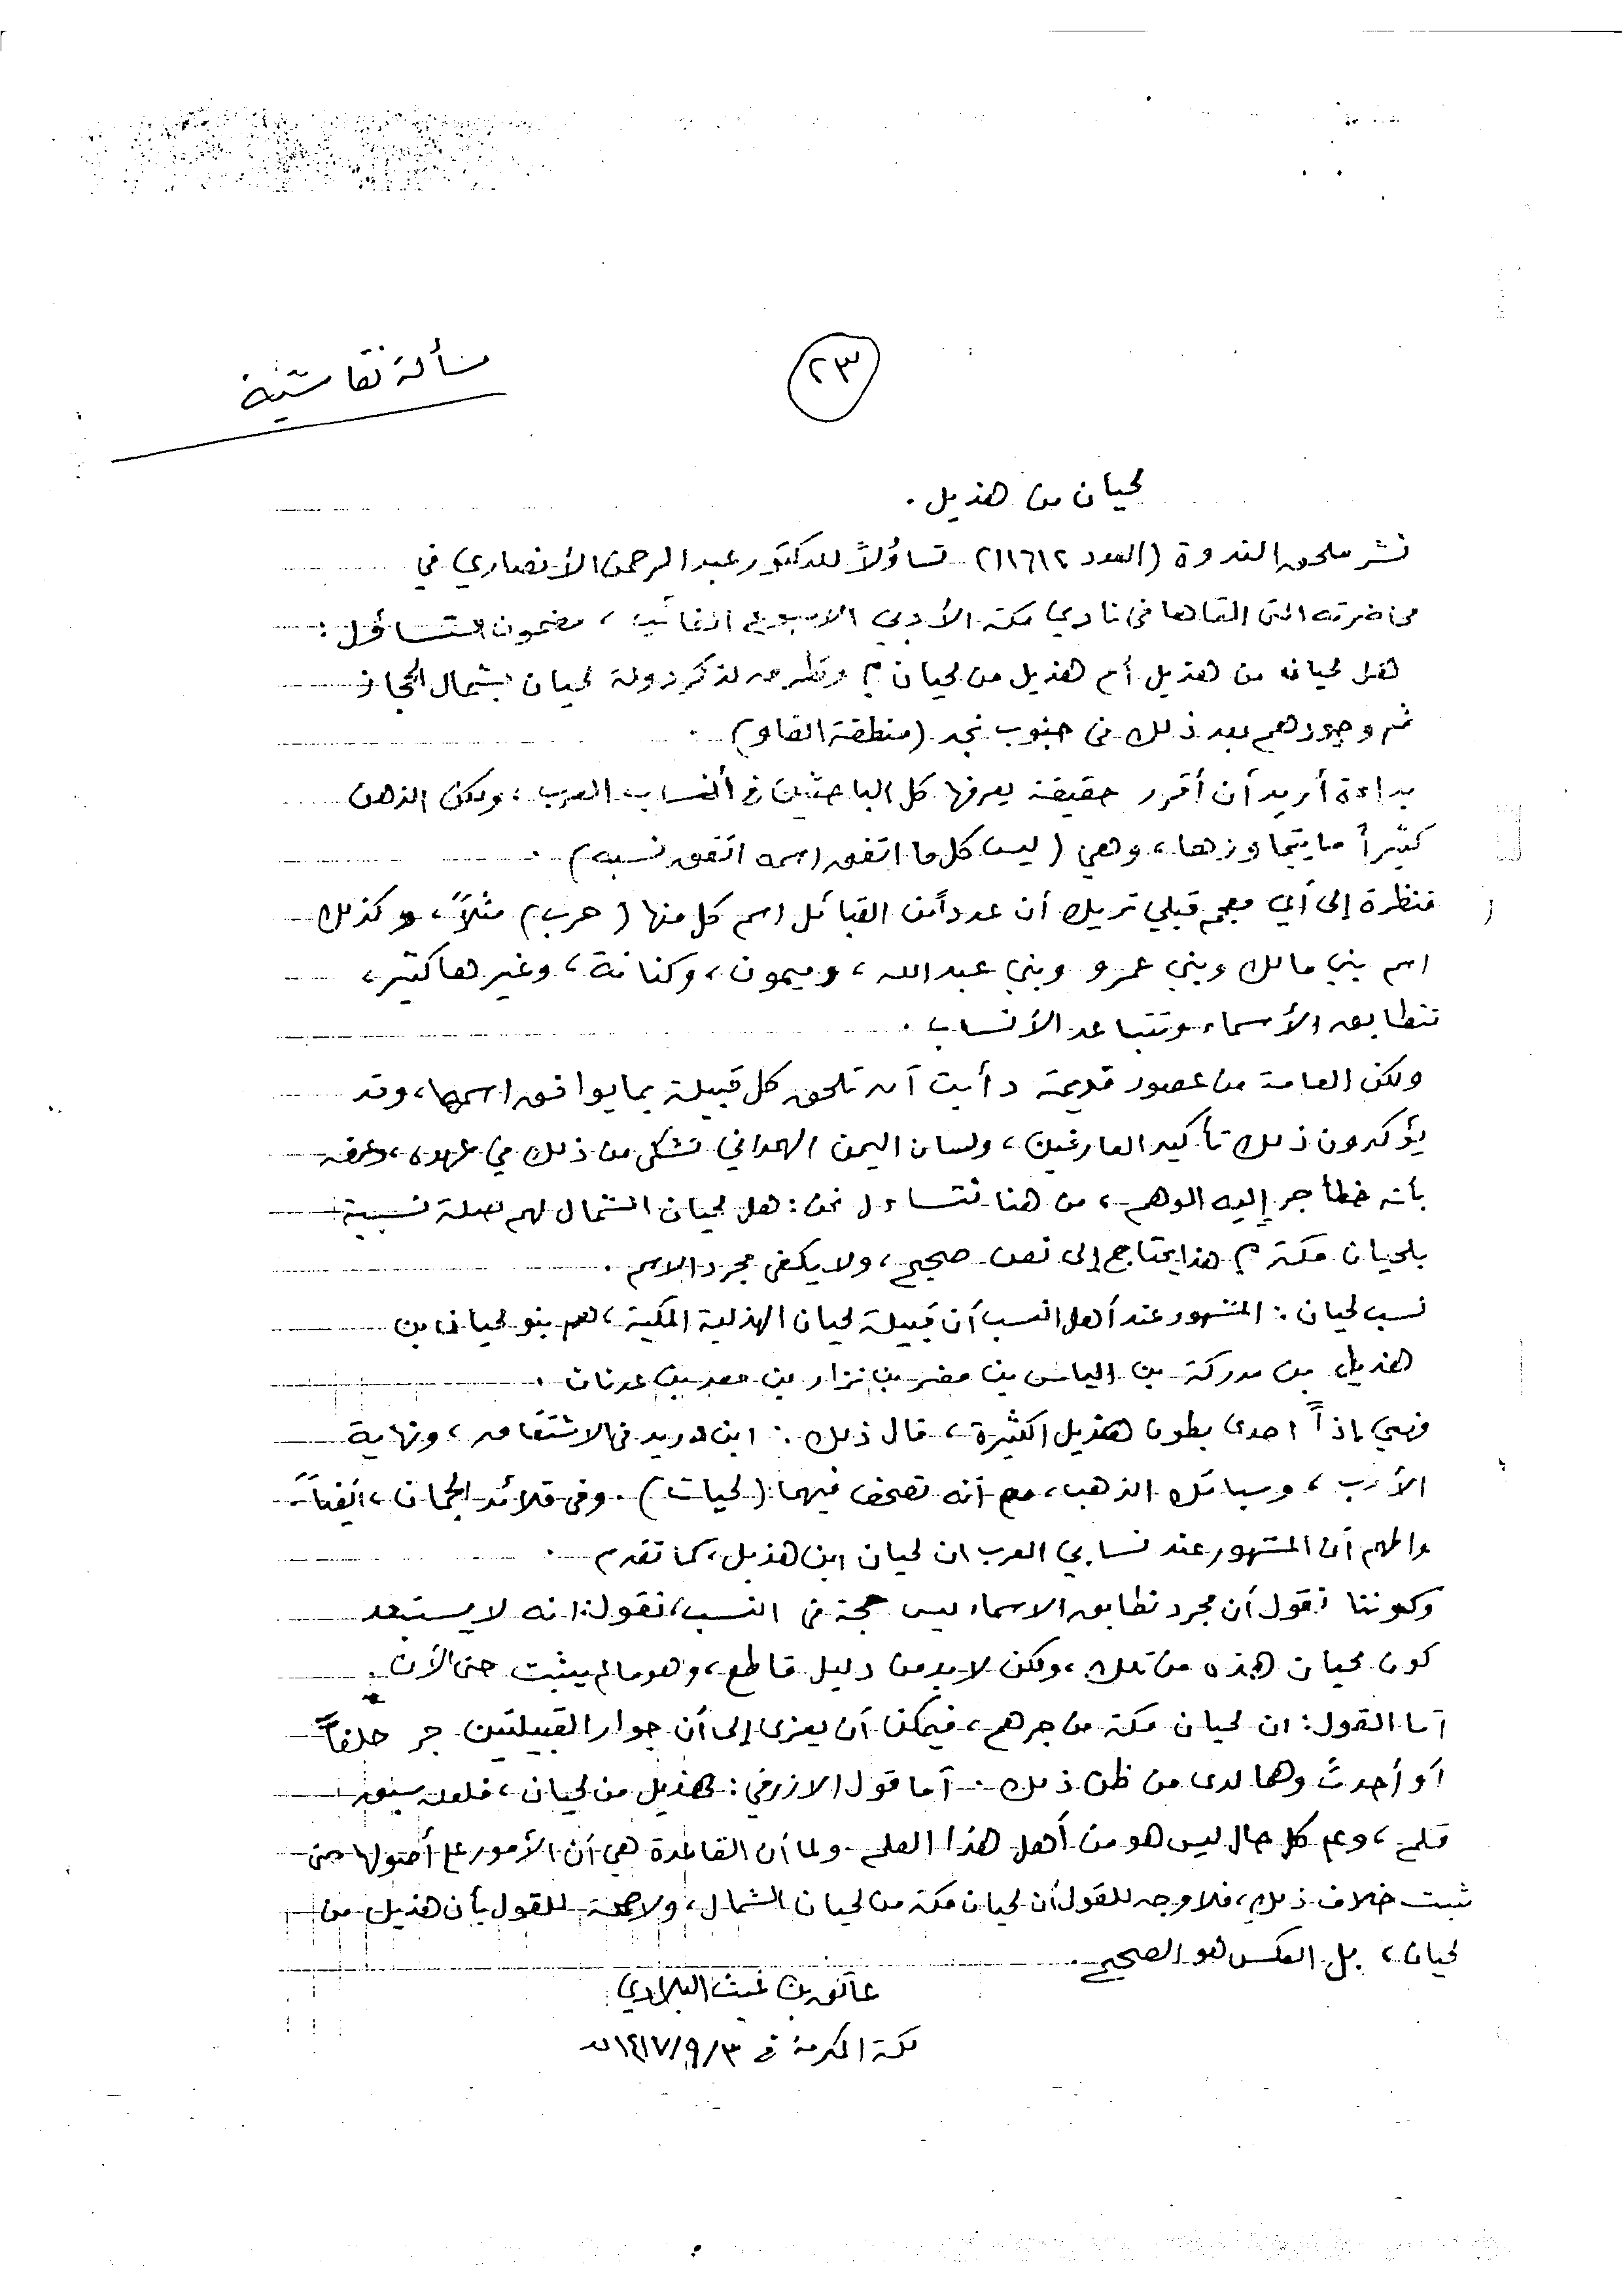 ٢٣
مسألة نقاشية
لحيان من هذيل .
نشر ملحق الندوة (العدد ١١٦١٢) تساؤلاً للدكتور عبد الرحمن الأنصاري في
محاضرته التي القاها في نادي مكة الأدبي الاسبوع الفائت ، مضمون التساؤل :
هل لحيان من هذيل أم هذيل من لحيان ؟ وتطرق لذكر دولة لحيان بشمال الحجاز
ثم وجودهم بعد ذلك في جنوب نجد (منطقة الفاو) .
بداءة أريد أن أقرر حقيقة يعرفها كل الباحثين في أنساب العرب ، ولكن الذهن
كثيراً ما يتجاوزها ، وهي (ليس كل ما اتفق اسمه اتفق نسبه) .
فنظرة إلى أي معجم قبلي تريك أن عدداً من القبائل اسم كل منها (حرب) مثلاً ، وكذلك
اسم بني مالك وبني عمرو وبني عبدالله ، وميمون ، وكنانة ، وغيرها كثير ،
تتطابق الأسماء وتتباعد الأنساب .
ولكن العامة من عصور قديمة دأبت أن تلحق كل قبيلة بما يوافق اسمها ، وقد
يؤكدون ذلك تأكيد العارفين ، ولسان اليمن الهمداني تشكى من ذلك في عهده ، وعرفه
بأنه خطأ جر إليه الوهم ، من هنا نتساءل نحن : هل لحيان الشمال لهم صلة نسبية
بلحيان مكة ؟ هذا يحتاج إلى نص صحيح ، ولا يكفي مجرد الاسم .
نسب لحيان : المشهور عند أهل النسب أن قبيلة لحيان الهذلية المكية ، هم بنو لحيان بن
هذيل بن مدركة بن الياس بن مضر بن نزار بن معد بن عدنان .
فهي إذاً احدى بطون هذيل الكثيرة ، قال ذلك : ابن دريد في الاشتقاق ، ونهاية
الأرب ، وسبائك الذهب ، مع أنه تصحف فيهما (لحيات) . وفي قلائد الجمان ، أيضاً .
والمهم أن المشهور عند نسابي العرب ان لحيان ابن هذيل ، كما تقدم .
وكوننا نقول أن مجرد تطابق الاسماء ليس حجة في النسب ، نقول : انه لا يستبعد
كون لحيان هذه من تلك ، ولكن لابد من دليل قاطع ، وهو مالم يثبت حتى الآن .
أما القول : ان لحيان مكة من جرهم ، فيمكن أن يعزى إلى أن جوار القبيلتين جر حلفاً
أو أحدث وهما لدى من ظن ذلك . أما قول الازرقي : هذيل من لحيان ، فلعله سبق
قلم ، وعلى كل حال ليس هو من أهل هذا العلم . ولما أن القاعدة هي أن الأمور على أصولها حتى
ثبت خلاف ذلك ، فلا وجه للقول أن لحيان مكة من لحيان الشمال ، ولا صحة للقول بأن هذيل من
لحيان ، بل العكس هو الصحيح .
عاتق بن غيث البلادي
مكة المكرمة في ١٤١٧/٩/٣هـ